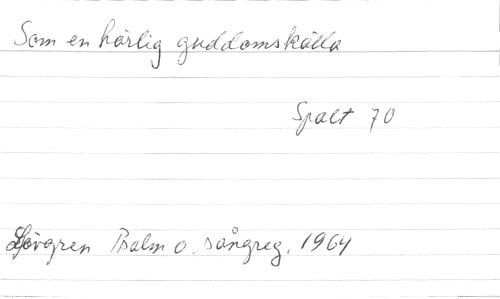 Som en härlig guddomskälla
Spalt 70
Lövgren Psalm o. sångreg. 1964